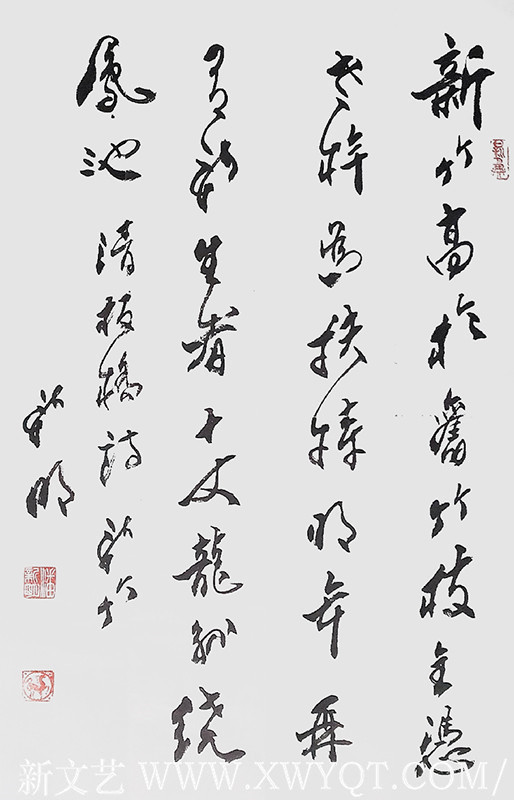 新竹高於舊竹枝全憑
老幹為扶持明年再
有新生者十丈龍孫繞
鳳池 清板橋詩 新竹
新明
新文艺 WWW.XWYQT.COM/